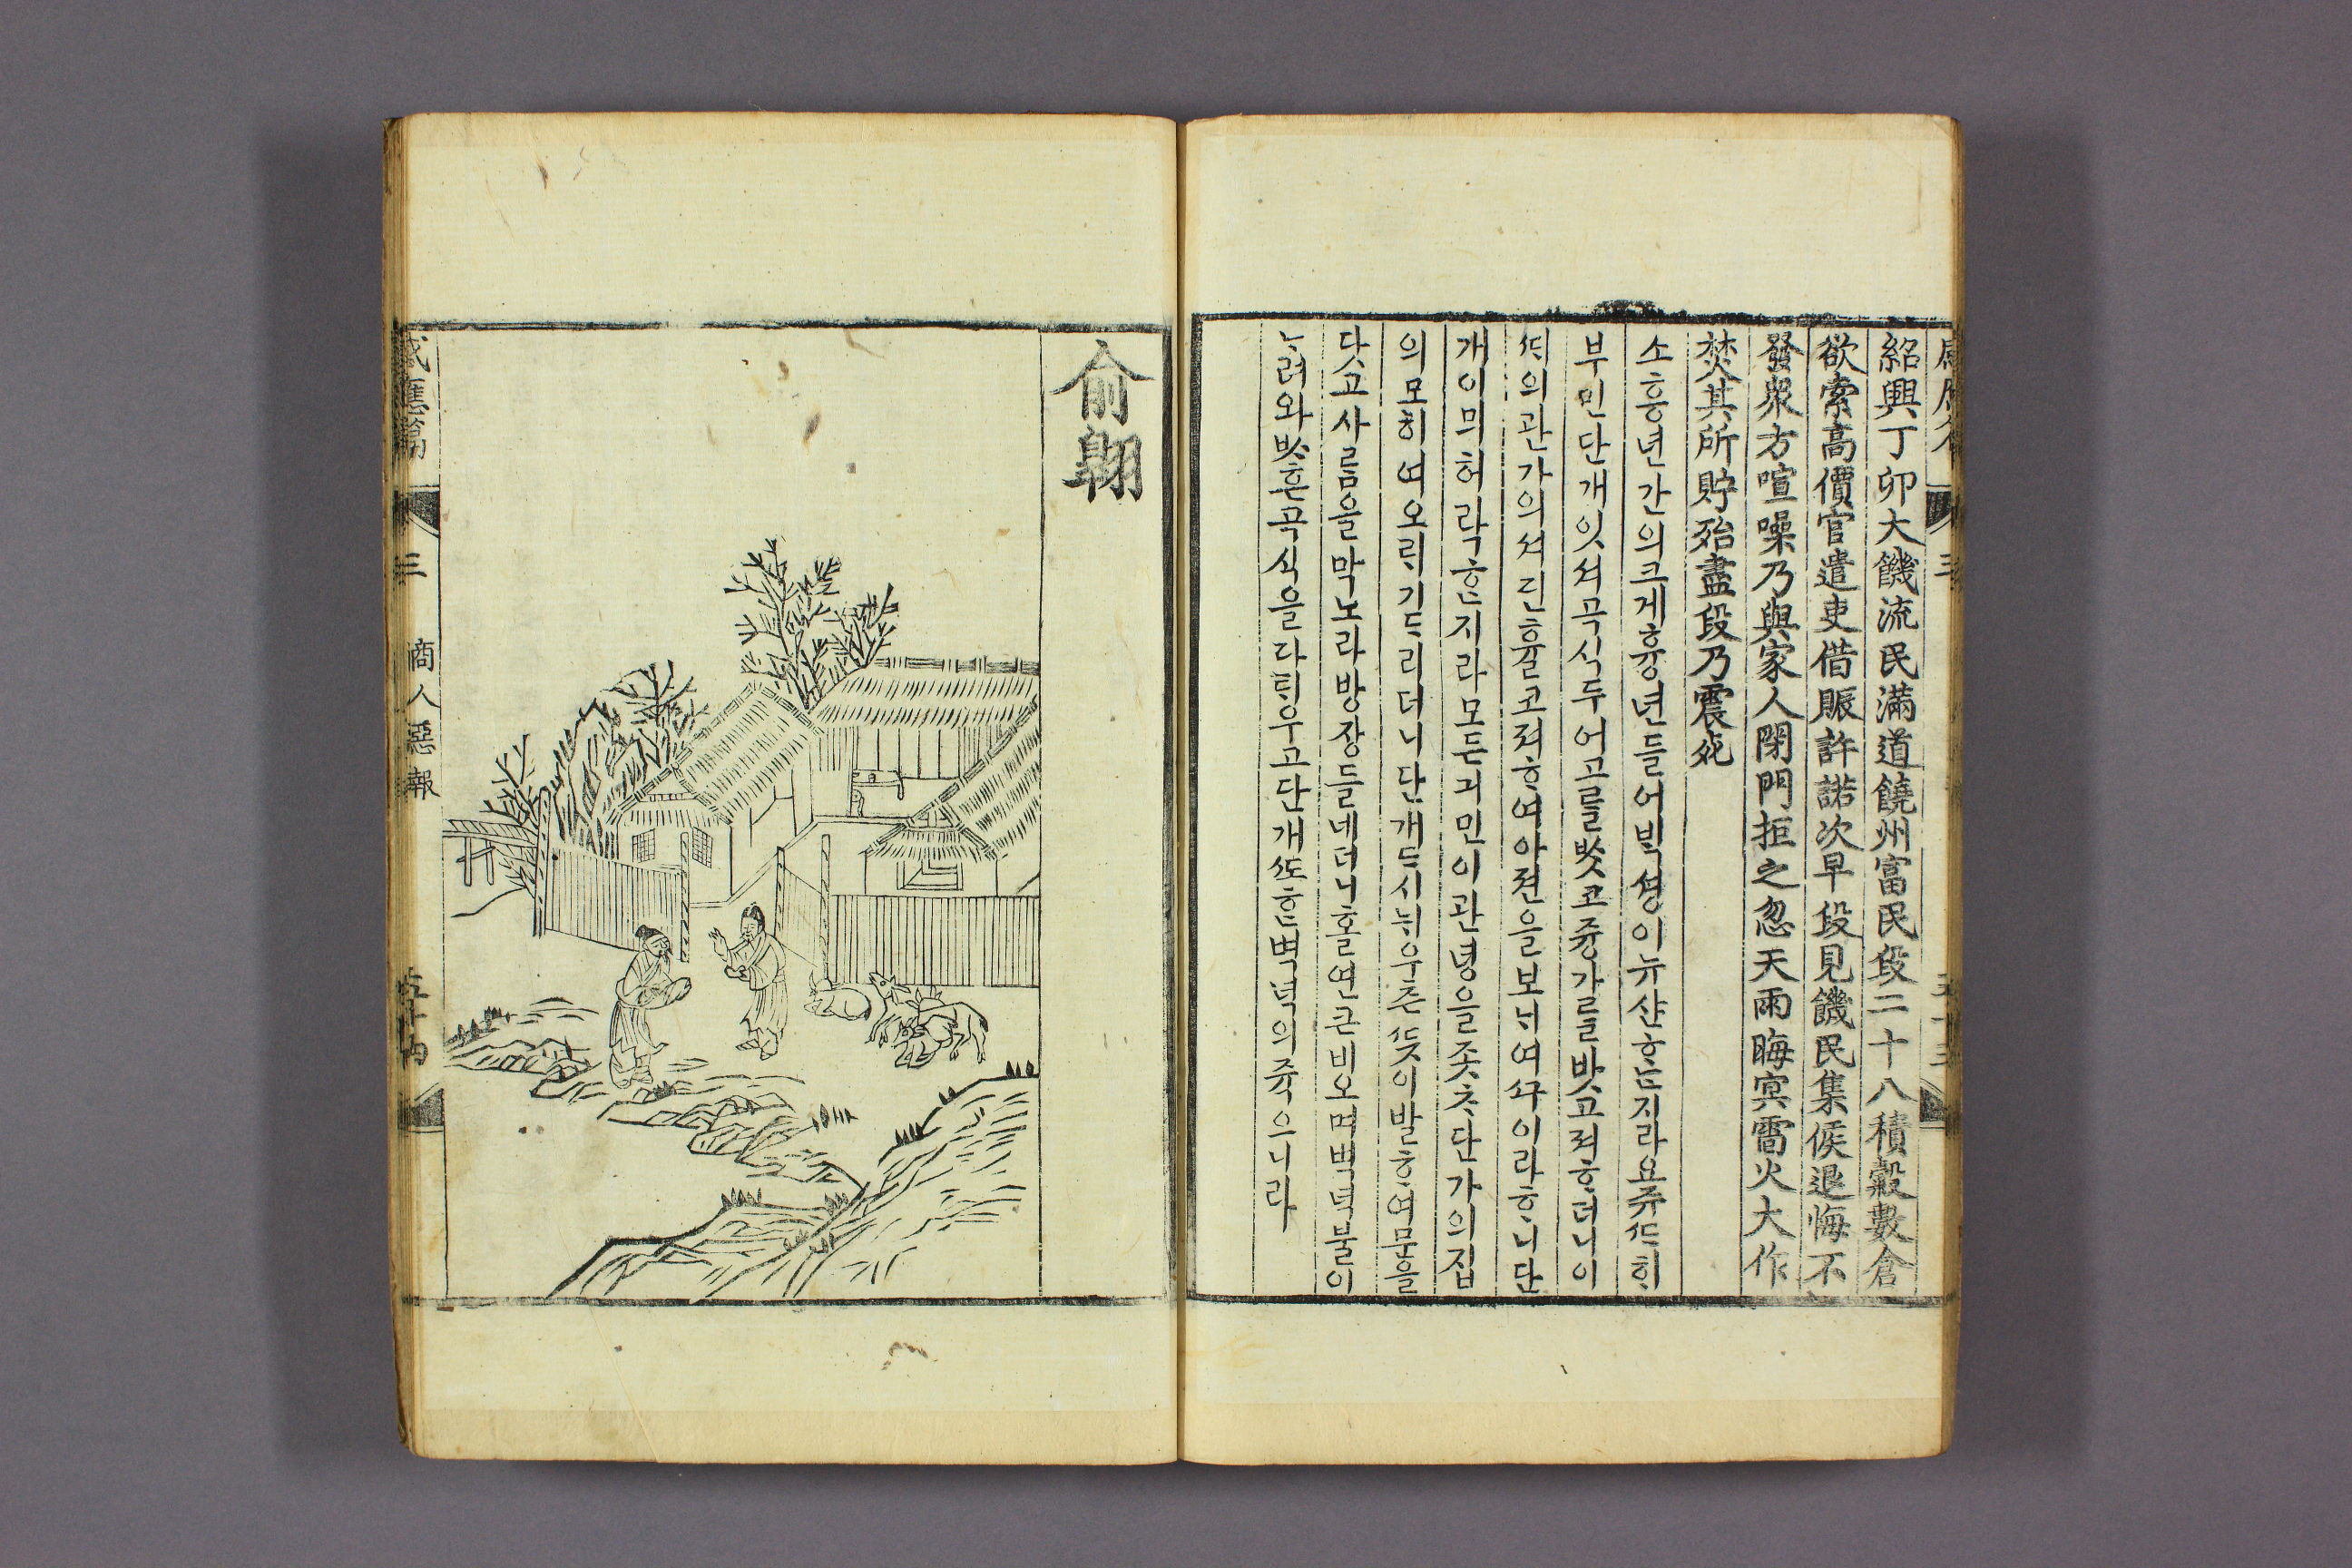 紹興丁卯大饑流民滿道饒州富民段二十八積穀數倉
欲索高價官遣吏借賑許諾次早段見饑民集候退悔不
發衆方喧噪乃與家人閉門拒之忽天雨晦冥雷火大作
焚其所貯殆盡段乃震死
소흥년간의크게흉년들어ᄇᆡᆨ셩이뉴산ᄒᆞᄂᆞᆫ지라요쥬ᄯᅡᄒᆡ
부민단개잇셔곡식두어고를ᄡᅡᆺ코즁가를밧고져ᄒᆞ더니이
ᄯᅢ의관가의셔진휼코져ᄒᆞ여아젼을보ᄂᆡ여ᄭᅮ이라ᄒᆞ니단
개이믜허락ᄒᆞᆫ지라모든긔민이관녕을좃ᄎᆞ단가의집
의모히여오ᄅᆡ기ᄃᆞ리더니단개다시뉘우츤ᄯᅳᆺ이발ᄒᆞ여문을
닷고사ᄅᆞᆷ을막노라방장들네더니홀연큰비오며벽녁불이
ᄂᆞ려와ᄡᅡ흔곡식을다ᄐᆡ우고단개ᄯᅩᄒᆞᆫ벽녁의쥭으니라
三
俞翶
感應篇
三
商人惡報